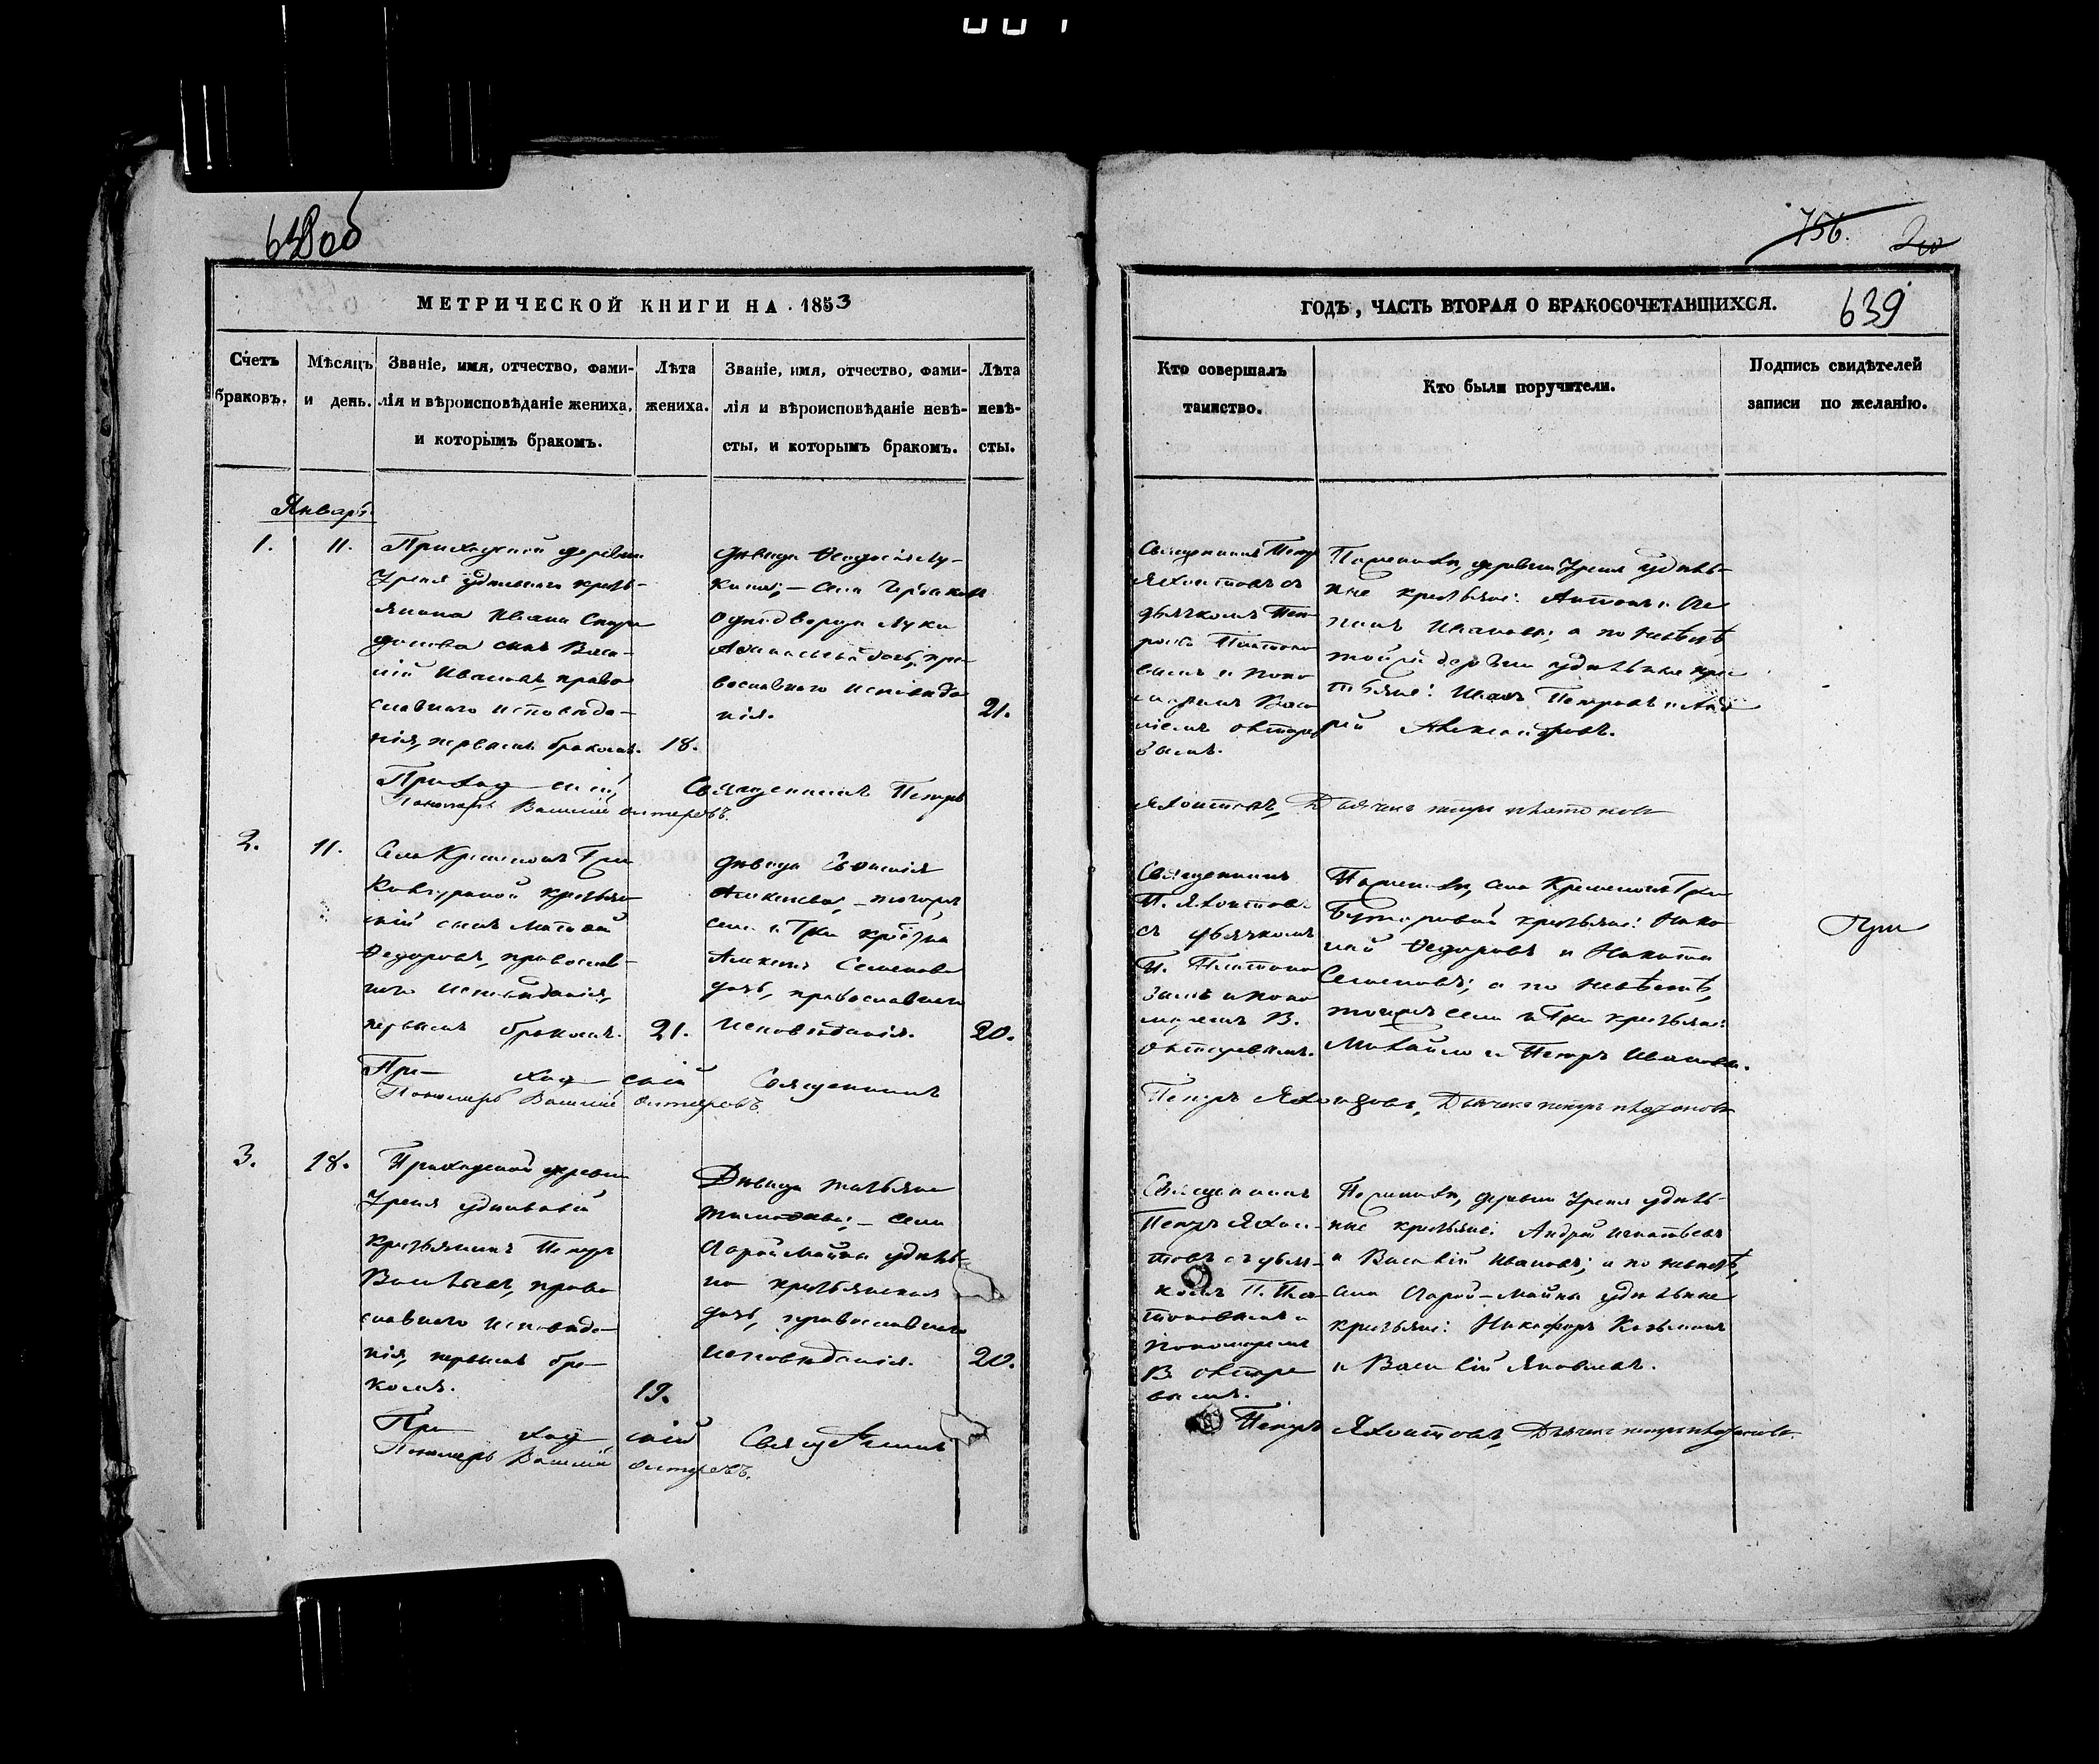 638 об
756.
МЕТРИЧЕСКОЙ КНИГИ НА 1853
ГОДЪ, ЧАСТЬ ВТОРАЯ О БРАКОСОЧЕТАВШИХСЯ.
639
Счетъ
браковъ.
Мѣсяцъ
и день.
Званіе, имя, отчество, фами-
лія и вѣроисповѣданіе жениха,
и которымъ бракомъ.
Лѣта
жениха.
Званіе, имя, отчество, фами-
лія и вѣроисповѣданіе невѣ-
сты, и которымъ бракомъ.
Лѣта
невѣ-
сты.
Кто совершалъ
таинство.
Кто были поручители.
Подпись свидѣтелей
записи по желанію.
Январь
1.
11.
Приходской деревни
Урень удѣльнаго кресть-
янина Ивана Спири-
донова сынъ Васи-
лій Ивановъ, право
славнаго исповѣда-
нія, первымъ бракомъ.
18.
дѣвица Ѳеодосія Лу-
кина; – села
однодворца Луки
дочь, пра
вославнаго исповѣда
нія.
21.
Священникъ Петръ
Яхонтовъ съ
дьячкомъ Пет-
ромъ Платоно
вымъ и поно
маремъ Васи
ліемъ
По женихѣ, деревни Урень удѣль-
ные крестьяне: Антонъ и Сте
панъ Ивановы; а по невѣстѣ
той же деревни удѣльные кре
стьяне: Иванъ Петровъ и Анд
рей Александровъ.
Приходскій Священникъ Петръ
Яхонтовъ, Дьячекъ Петръ Платоновъ
Пономарь Василій
2.
11.
Села
крестьян
скій сынъ Матвей
Ѳедоровъ, православ-
наго исповѣданія,
первымъ бракомъ.
21.
дѣвица Евфимія
Алексеева, – тогоже
села
Алексея Семенова
дочь, православнаго
исповѣданія.
20.
Священникъ
П. Яхонтовъ
съ дьячкомъ
П. Платоно
вымъ и поно
маремъ В.
По женихѣ, села
крестьяне: Нико
лай Ѳедоровъ и Никита
Семеновъ; а по невѣстѣ,
тогоже села крестьяне:
Михайло и Петръ Ивановы.
Приходскій Священникъ
Петръ Яхонтовъ, Дьячекъ Петръ Платоновъ
Пономарь Василій
3.
18.
Приходской деревни
Урень удѣльный
крестьянинъ Петръ
Васильевъ, право
славнаго исповѣда-
нія, первымъ бра-
комъ.
19.
Дѣвица Татьяна
Тимофеева; – села
Старой Майны удѣль-
но крестьянская
дочь, православнаго
исповѣданія.
20.
Священникъ
Петръ Яхон-
товъ съ дьяч-
комъ П. Пла-
тоновымъ и
пономаремъ
В.
По женихѣ, деревни Урень удѣль-
ные крестьяне: Андрей Игнатьевъ
и Василій Ивановъ; а по невѣстѣ,
села Старой-Майны удѣльные
крестьяне: Никифоръ Козьминъ
и Василій Яковлевъ.
Приходскій Священникъ
Петръ Яхонтовъ, Дьячекъ Петръ Платоновъ.
Пономарь Василій